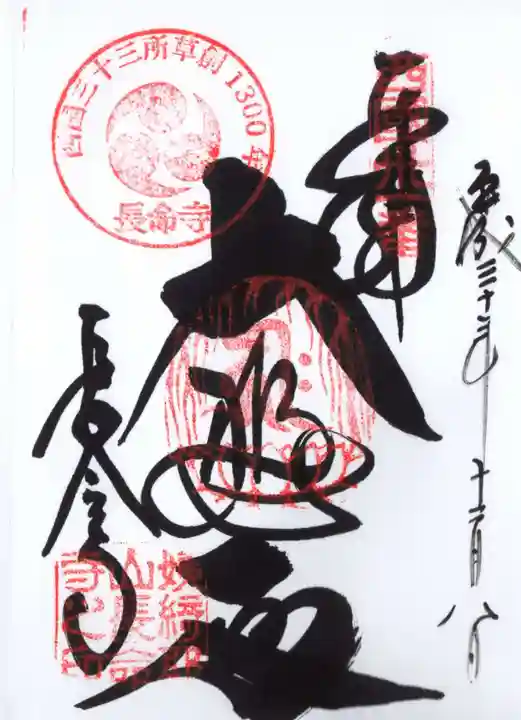 平成三十年十二月八日
奉拝
西国三十一番
大悲閣
長命寺
西国三十三所草創1300年
長命寺
姨綺耶山長命寺之印